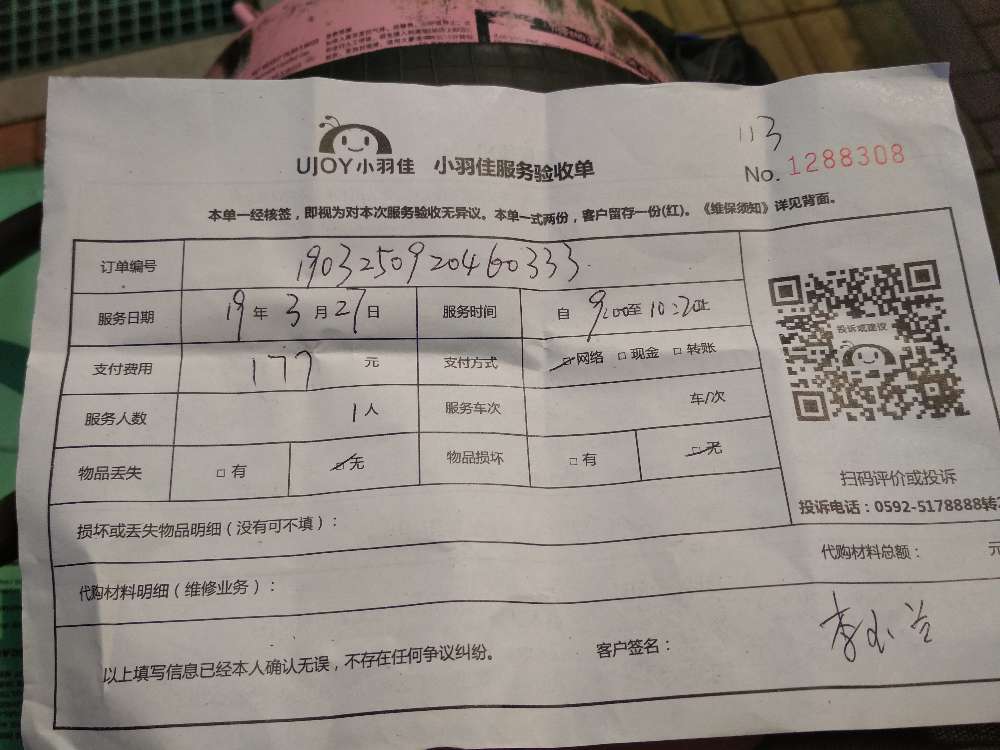 113
UJOY小羽佳 小羽佳服务验收单
No. 1288308
本单一经核签，即视为对本次服务验收无异议。本单一式两份，客户留存一份(红)。《维保须知》详见背面。
订单编号 190325092046033​3
服务日期 19年3月27日 服务时间 自9:00至10:20止
支付费用 177 元 支付方式 ☑网络 □现金 □转账
服务人数 1人 服务车次 车/次
物品丢失 □有 ☑无 物品损坏 □有 ☑无
投诉或建议
扫码评价或投诉
投诉电话：0592-5178888转
损坏或丢失物品明细（没有可不填）：
代购材料总额： 元
代购材料明细（维修业务）：
以上填写信息已经本人确认无误，不存在任何争议纠纷。 客户签名： 李小兰